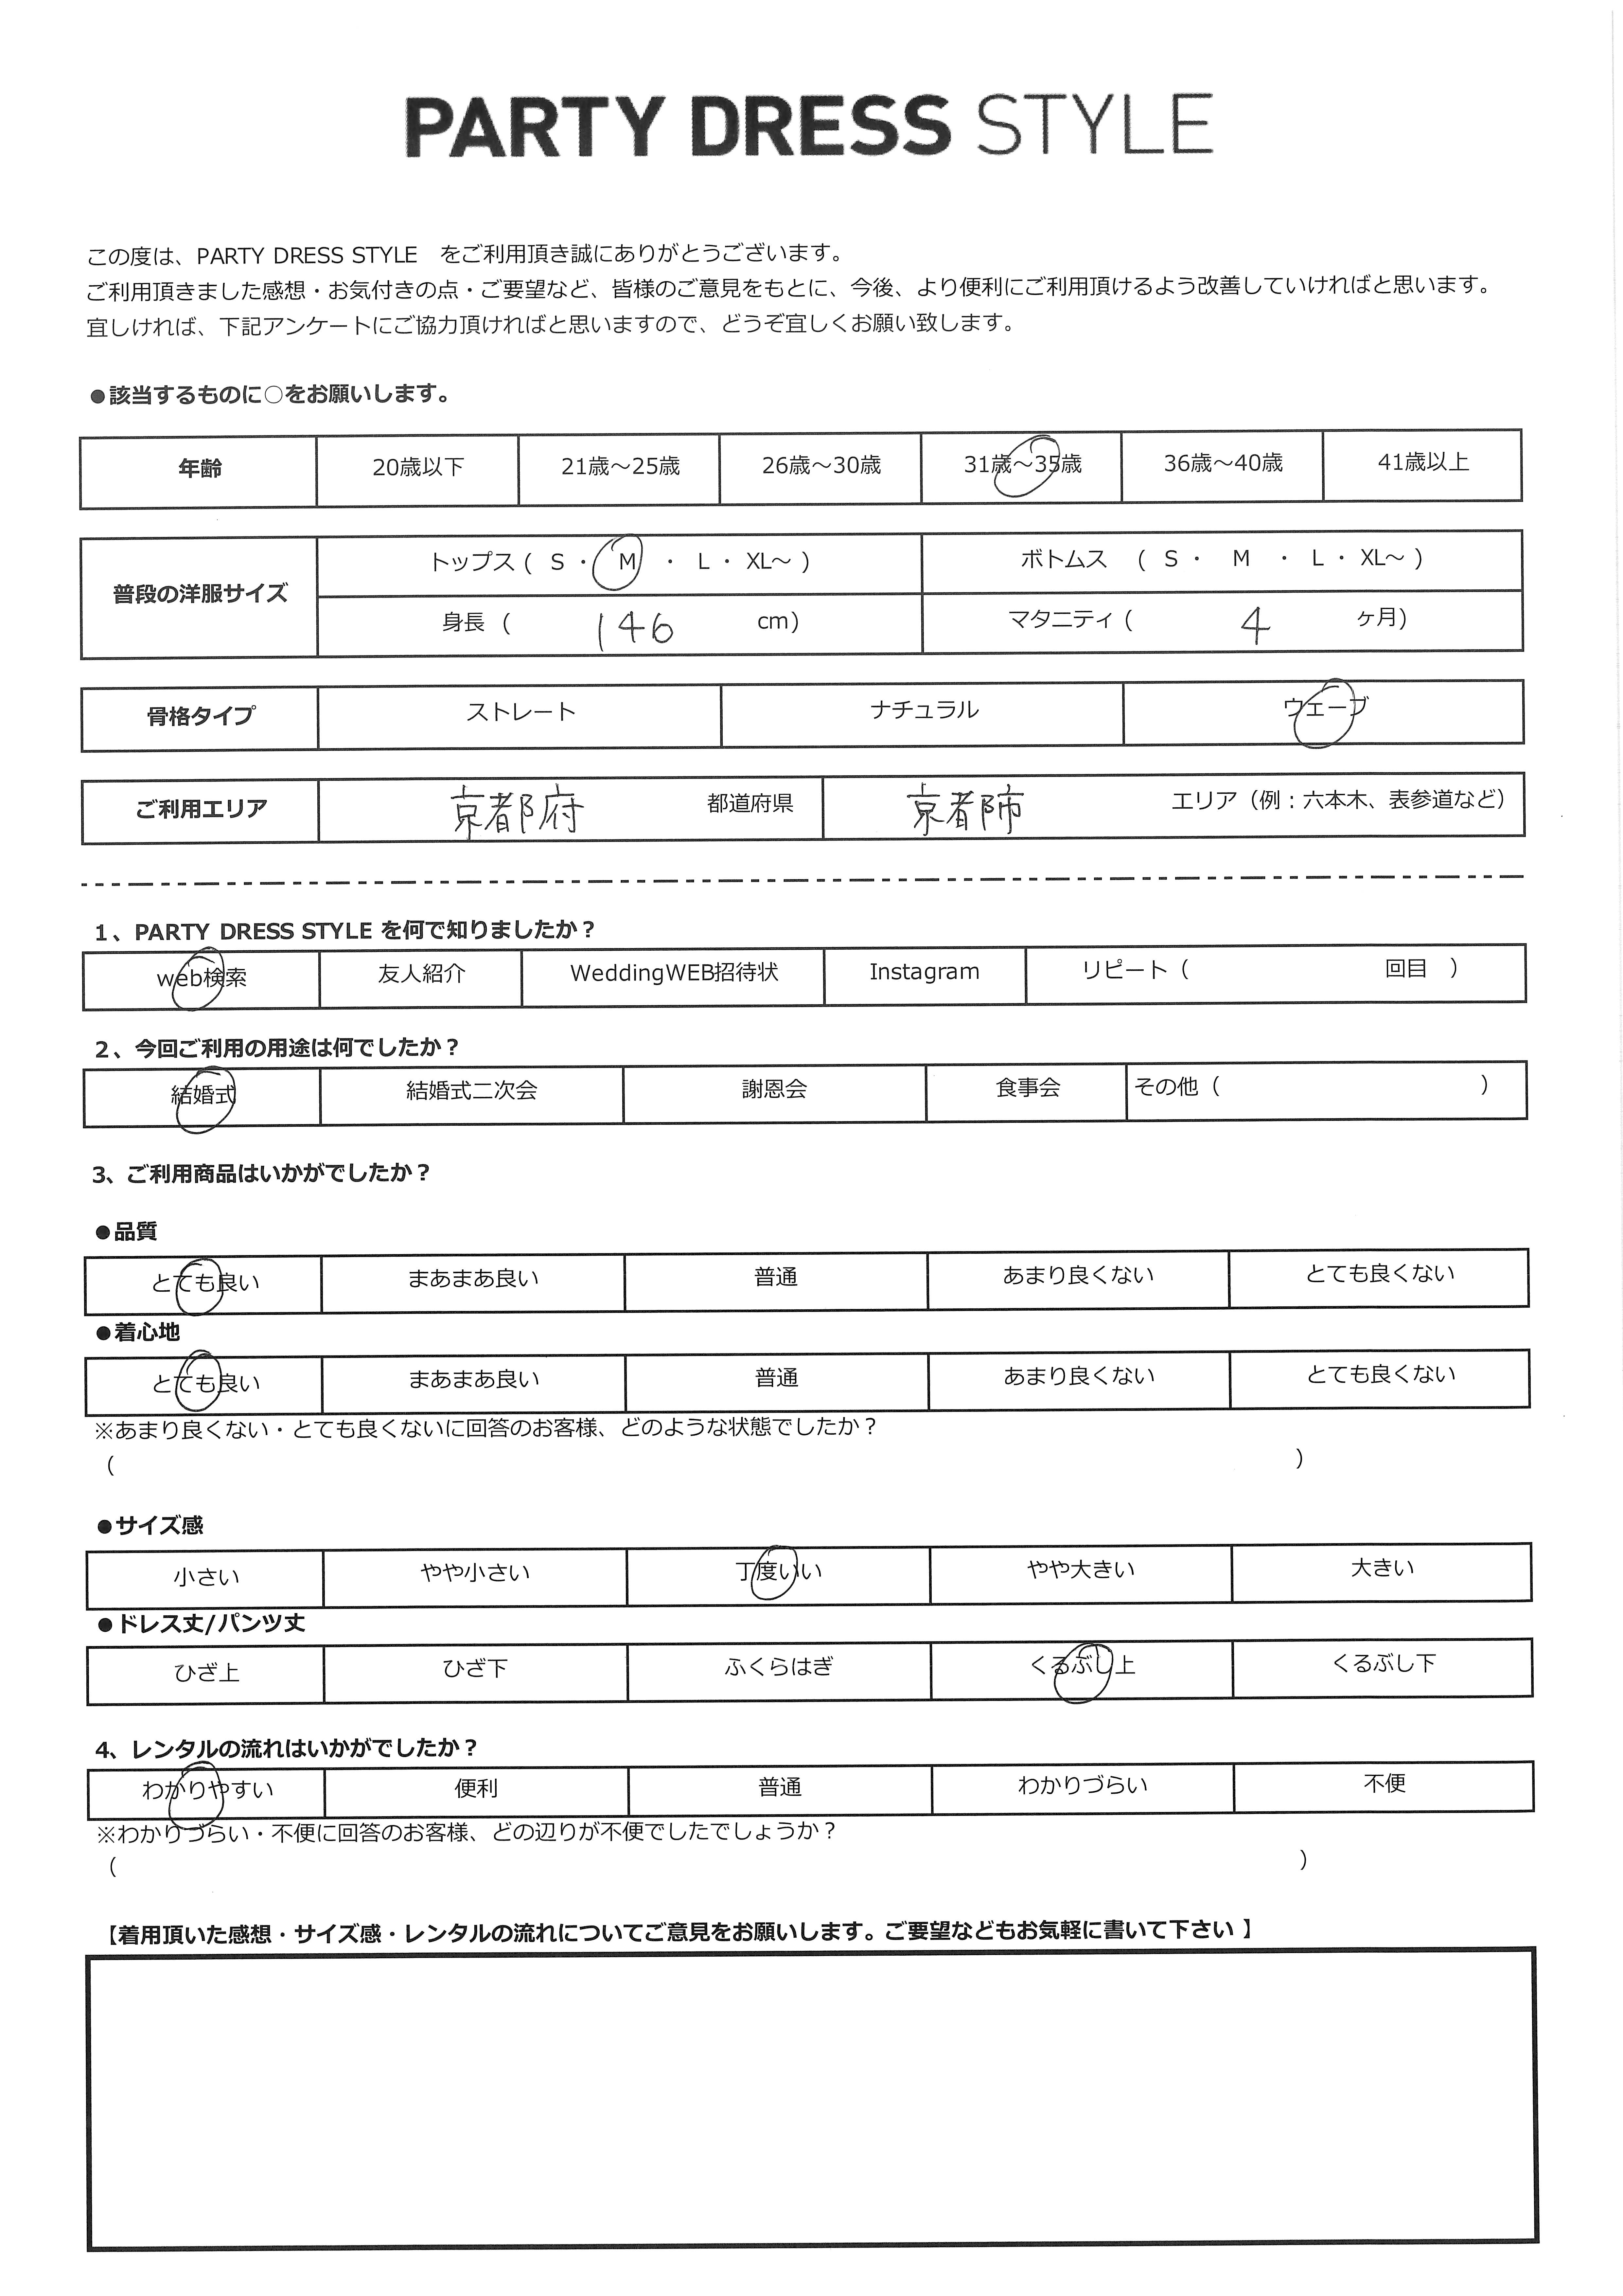 PARTY DRESS STYLE
この度は、PARTY DRESS STYLE　をご利用頂き誠にありがとうございます。
ご利用頂きました感想・お気付きの点・ご要望など、皆様のご意見をもとに、今後、より便利にご利用頂けるよう改善していければと思います。
宜しければ、下記アンケートにご協力頂ければと思いますので、どうぞ宜しくお願い致します。
●該当するものに○をお願いします。
年齢 20歳以下 21歳～25歳 26歳～30歳 31歳～35歳 36歳～40歳 41歳以上
普段の洋服サイズ トップス ( S ・ M ・ L ・ XL～ ) ボトムス ( S ・ M ・ L ・ XL～ )
身長 ( 146 cm) マタニティ ( 4 ヶ月)
骨格タイプ ストレート ナチュラル ウェーブ
ご利用エリア 京都府 都道府県 京都市 エリア（例：六本木、表参道など）
1、PARTY DRESS STYLE を何で知りましたか？
web検索 友人紹介 WeddingWEB招待状 Instagram リピート（ 回目 ）
2、今回ご利用の用途は何でしたか？
結婚式 結婚式二次会 謝恩会 食事会 その他（ ）
3、ご利用商品はいかがでしたか？
●品質
とても良い まあまあ良い 普通 あまり良くない とても良くない
●着心地
とても良い まあまあ良い 普通 あまり良くない とても良くない
※あまり良くない・とても良くないに回答のお客様、どのような状態でしたか？
（ ）
●サイズ感
小さい やや小さい 丁度いい やや大きい 大きい
●ドレス丈/パンツ丈
ひざ上 ひざ下 ふくらはぎ くるぶし上 くるぶし下
4、レンタルの流れはいかがでしたか？
わかりやすい 便利 普通 わかりづらい 不便
※わかりづらい・不便に回答のお客様、どの辺りが不便でしたでしょうか？
（ ）
【着用頂いた感想・サイズ感・レンタルの流れについてご意見をお願いします。ご要望などもお気軽に書いて下さい 】